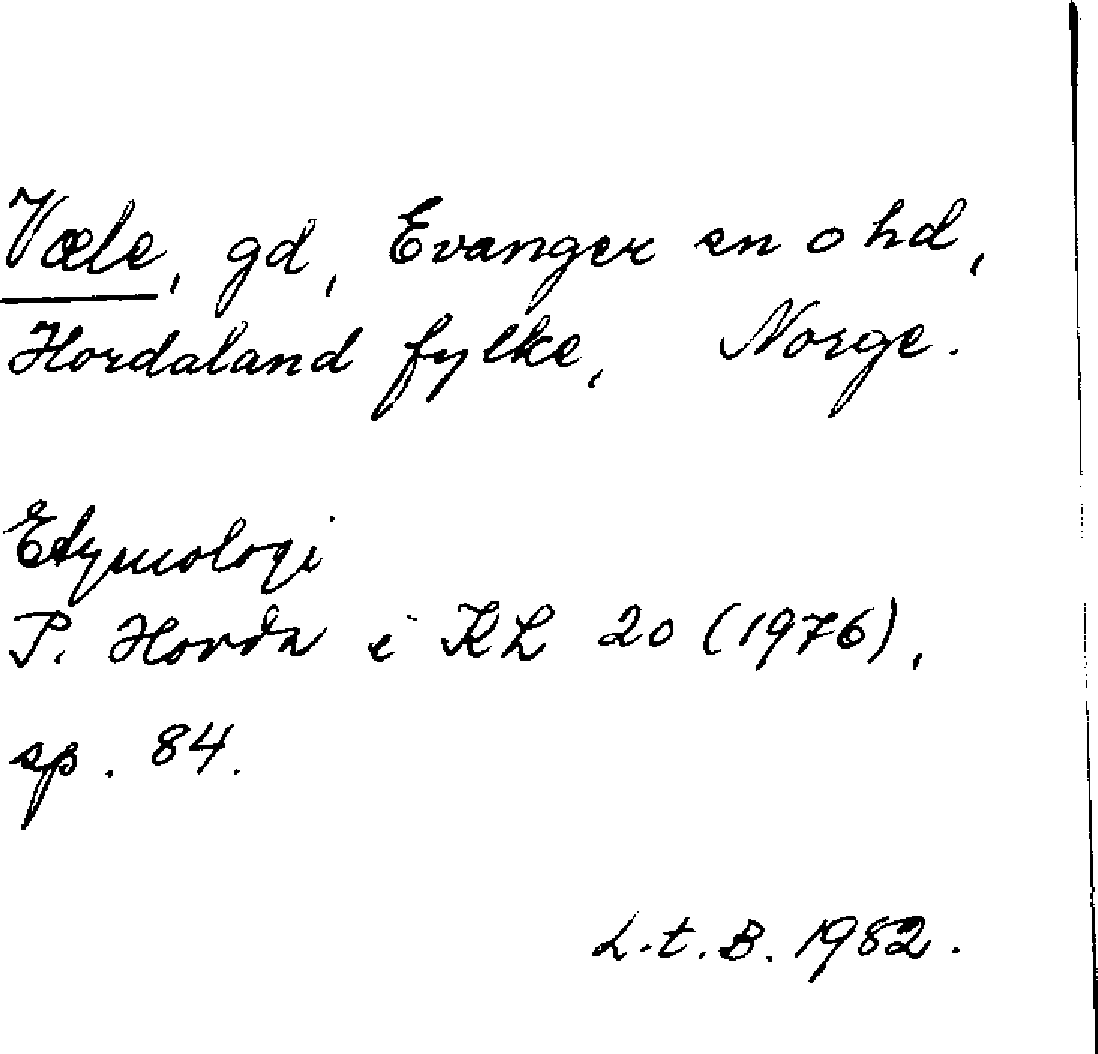 Væle, gd, Evanger sn o hd,
Hordaland fylke, Norge.
Etymologi
P. Hovda i KL 20 (1976),
sp. 84.
L.t.B. 1982.